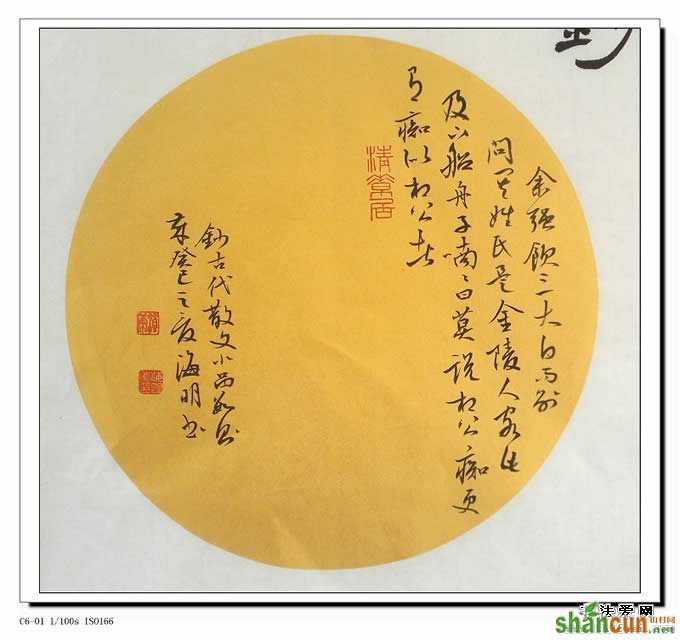 余强饮三大白而别
问其姓氏是金陵人客此
及下船舟子喃喃曰莫说相公痴更
有痴似相公者
清
居
钞古代散文小品数则
癸巳之夏海明书
C6-01 1/100s ISO166
书法爱网
shancun
山村网
.net